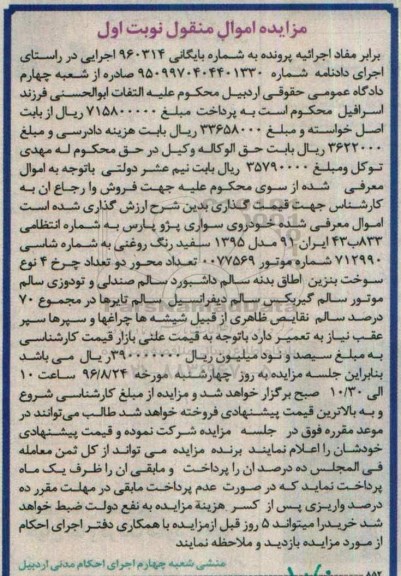 مزایده اموال منقول نوبت اول
برابر مفاد اجرائیه پرونده به شماره بایگانی ۹۶۰۳۱۴ اجرایی در راستای
اجرای دادنامه شماره ۹۵۰۹۹۷۰۴۰۴۴۰۱۳۳۰ صادره از شعبه چهارم
دادگاه عمومی حقوقی اردبیل محکوم علیه التفات ابوالحسنی فرزند
اسرافیل محکوم است به پرداخت مبلغ ۷۱۵۸۰۰۰۰۰ ریال از بابت
اصل خواسته و مبلغ ۳۳۶۵۸۰۰۰ ریال بابت هزینه دادرسی و مبلغ
۳۶۲۲۰۰۰ ریال بابت حق الوکاله وکیل در حق محکوم له مهدی
توکل ومبلغ ۳۵۷۹۰۰۰۰ ریال بابت نیم عشر دولتی باتوجه به اموال
معرفی شده از سوی محکوم علیه جهت فروش وا رجاع ان به
کارشناس جهت قیمت گذاری بدین شرح ارزش گذاری شده است
اموال معرفی شده خودروی سواری پژو پارس به شماره انتظامی
۸۳۳ب۴۳ ایران ۹۱ مدل ۱۳۹۵ سفید رنگ روغنی به شماره شاسی
۷۱۲۹۹۰ شماره موتور ۰۰۷۷۵۶۹ تعداد محور دو تعداد چرخ ۴ نوع
سوخت بنزین اطاق بدنه سالم داشبورد سالم صندلی و تودوزی سالم
موتور سالم گیربکس سالم دیفرانسیل سالم تایرها در مجموع ۷۰
درصد سالم نقایص ظاهری از قبیل شیشه ها چراغها و سپرها سپر
عقب نیاز به تعمیر دارد باتوجه به قیمت علنی بازار قیمت کارشناسی
به مبلغ سیصد و نود میلیون ریال ۳۹۰۰۰۰۰۰۰ریال می باشد
بنابراین جلسه مزایده به روز چهارشنبه مورخه ۹۶/۸/۲۴ ساعت ۱۰
الی ۱۰/۳۰ صبح برگزار خواهد شد و مزایده از مبلغ کارشناسی شروع
و به بالاترین قیمت پیشنهادی فروخته خواهد شد طالب می‌توانند در
موعد مقرره فوق در جلسه مزایده شرکت نموده و قیمت پیشنهادی
خودشان را اعلام نمایند برنده مزایده می تواند از کل ثمن معامله
فی المجلس ده درصد ان را پرداخت و مابقی ان را ظرف یک ماه
پرداخت نماید که در صورت عدم پرداخت مابقی در مهلت مقرر ده
درصد واریزی پس از کسر هزینه مزایده به نفع دولت ضبط خواهد
شد خریدرا میتواند ۵ روز قبل ازمزایده با همکاری دفتر اجرای احکام
از مورد مزایده بازدید و ملاحظه نمایند
منشی شعبه چهارم اجرای احکام مدنی اردبیل
۸۵۲